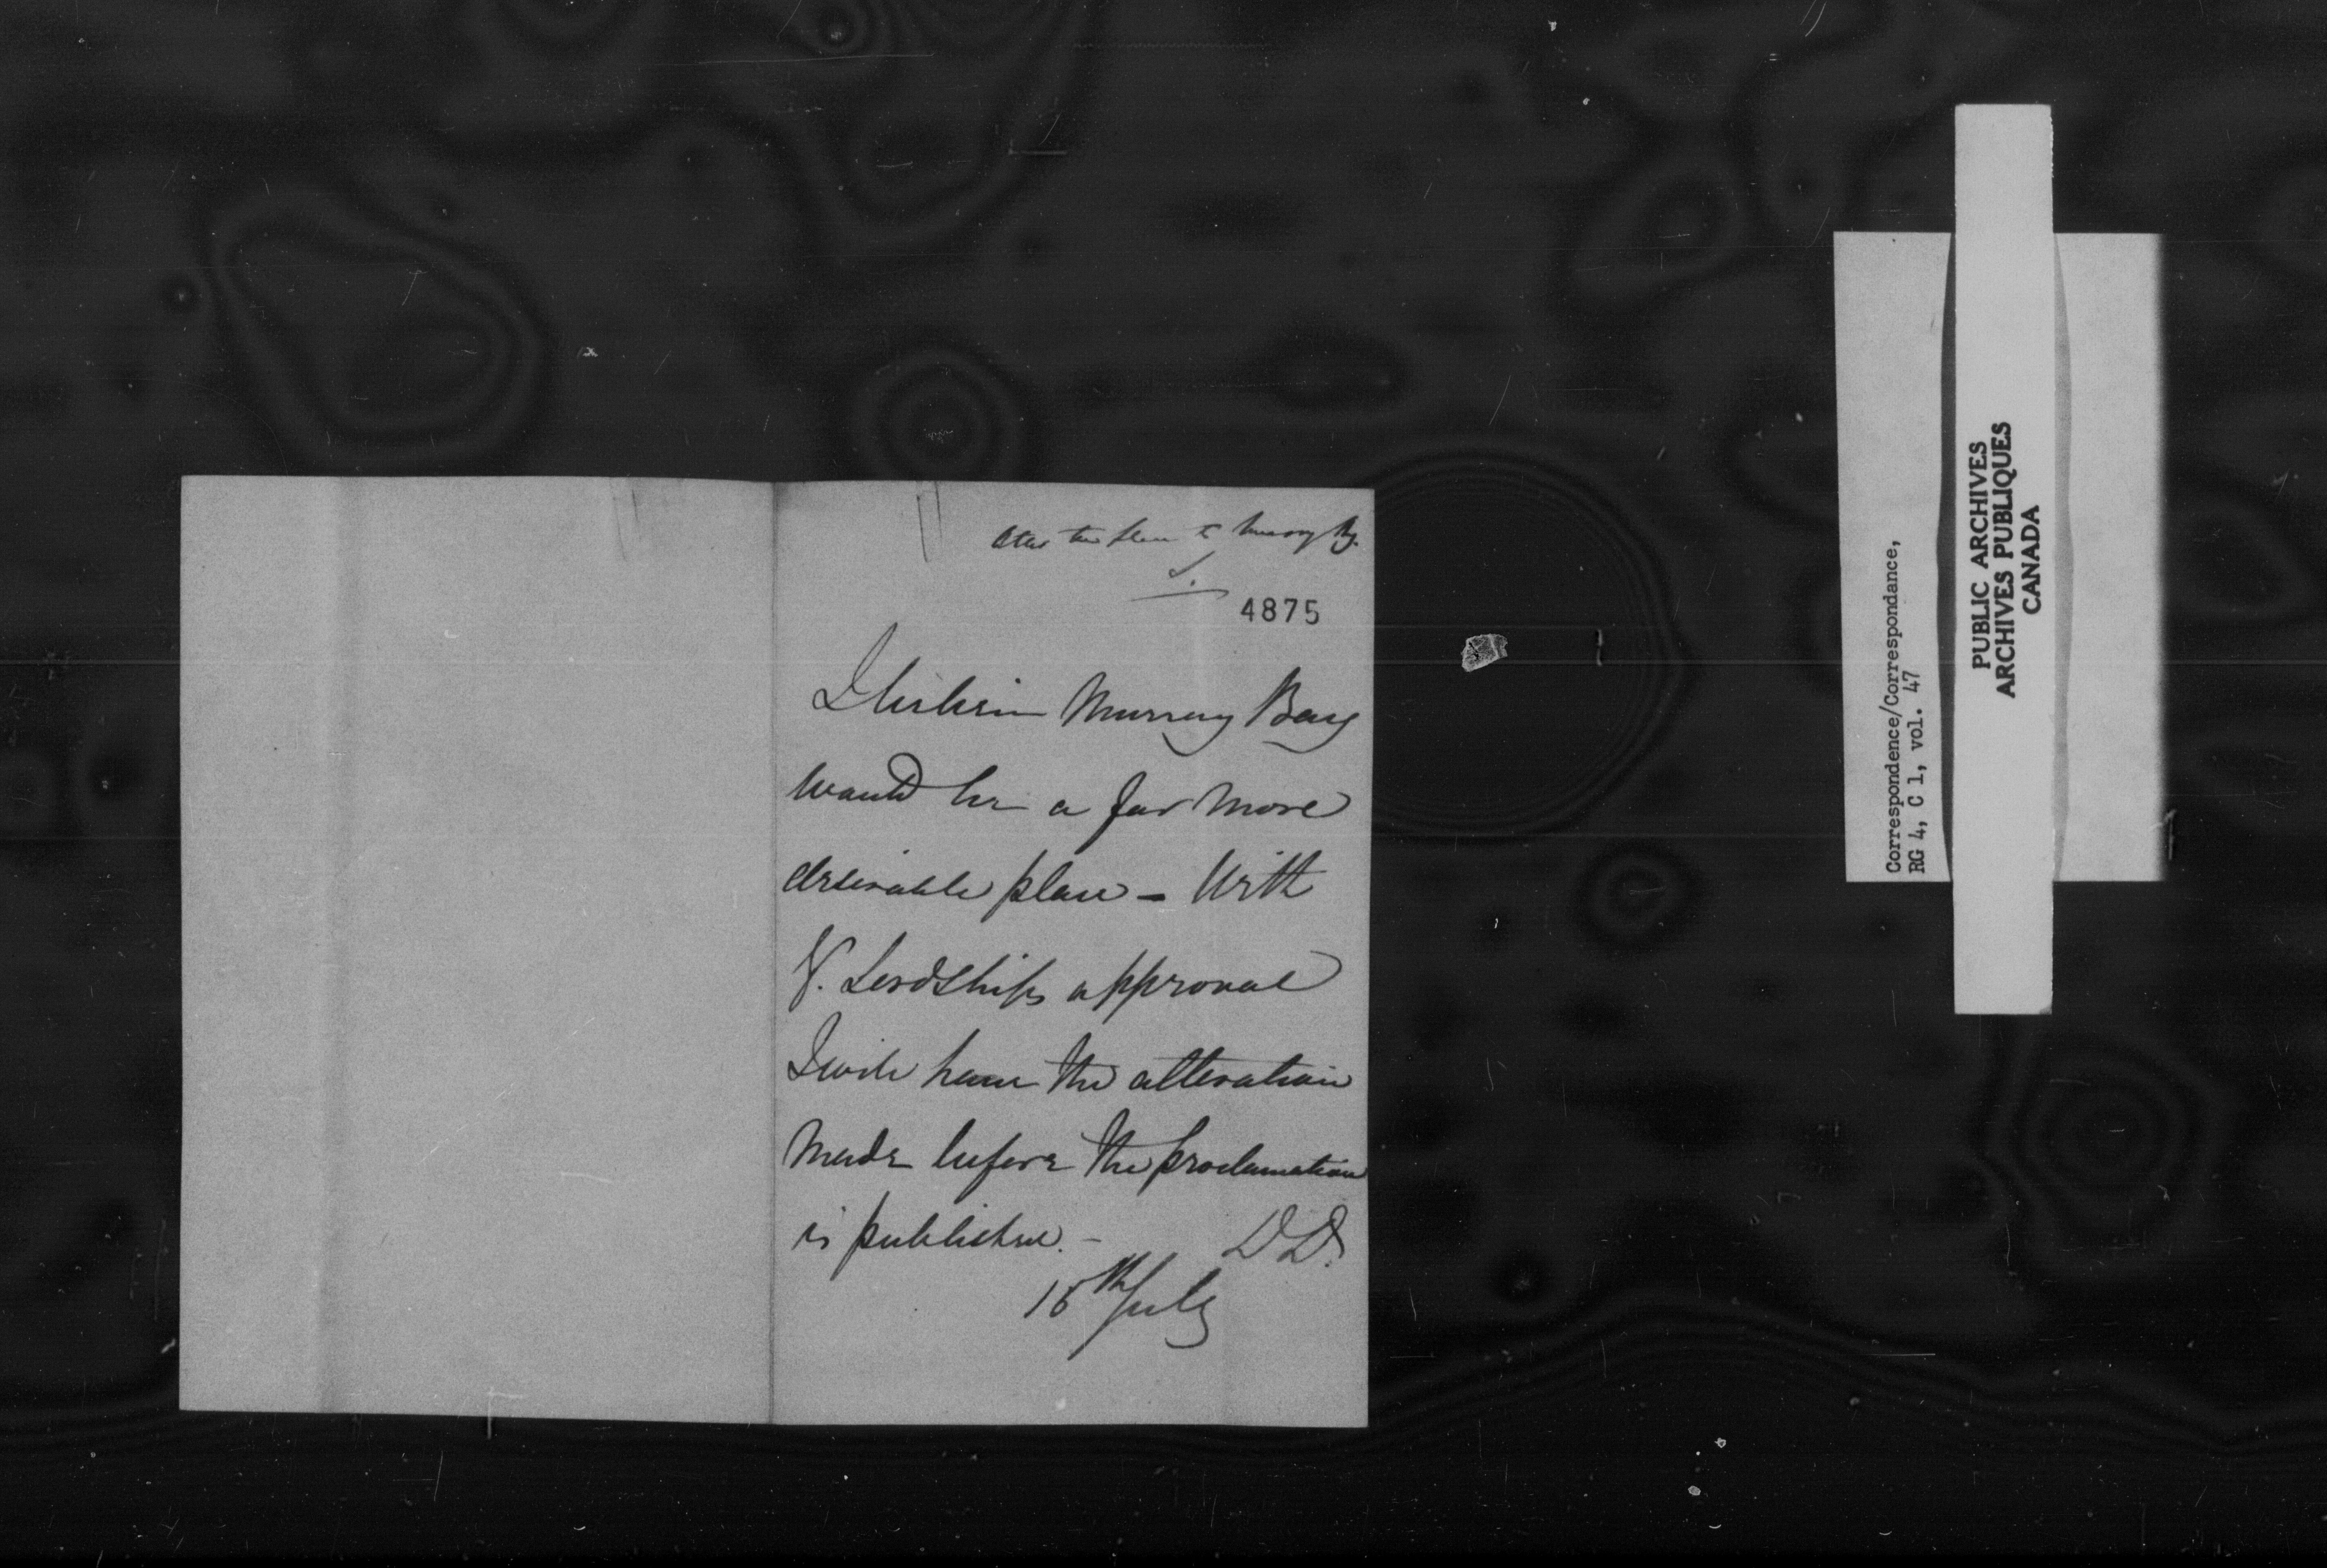 Alter the place to Murray By.
4875
I believe Murray Bay
would be a far more
desirable place – With
Y. Lordships approval
I will have the alteration
made before the proclamation
is published. –
D D.
15th July
Correspondence/Correspondance,
RG 4, C 1, vol. 47
PUBLIC ARCHIVES
ARCHIVES PUBLIQUES
CANADA